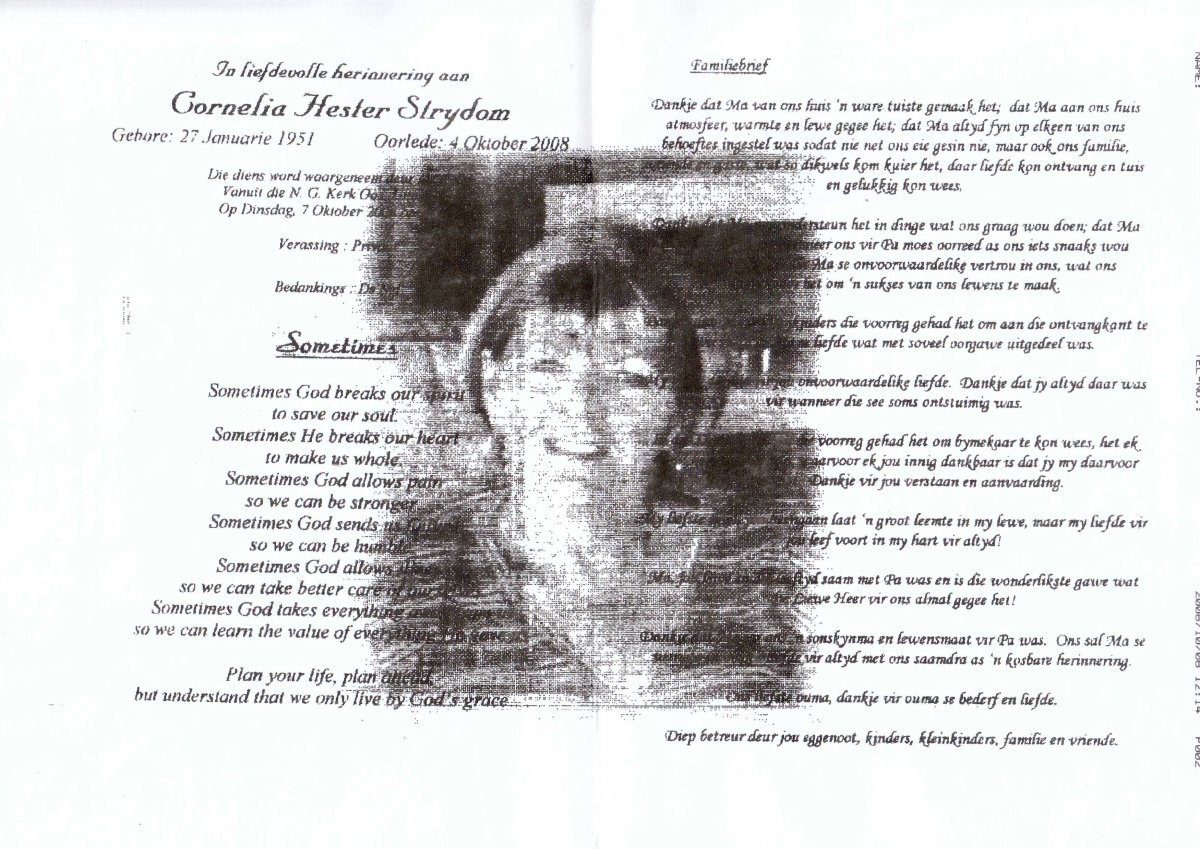 In liefdevolle herinnering aan
Cornelia Hester Strydom
Gebore: 27 Januarie 1951 Oorlede: 4 Oktober 2008
Die diens word waargeneem deur
Vanuit die N. G. Kerk
Op Dinsdag, 7 Oktober
Verassing :
Bedankings :
Sometimes
Sometimes God breaks our spirit
to save our soul.
Sometimes He breaks our heart
to make us whole.
Sometimes God allows pain
so we can be stronger
Sometimes God sends us
so we can be humble
Sometimes God allows
so we can take better care of ourselves
Sometimes God takes everything
so we can learn the value of everything
Plan your life, plan ahead,
but understand that we only live by God's grace
Familiebrief
Dankje dat Ma van ons huis 'n ware tuiste gemaak het; dat Ma aan ons huis
atmosfeer, warmte en lewe gegee het; dat Ma altyd fyn op elkeen van ons
behoeftes ingestel was sodat nie net ons eie gesin nie, maar ook ons familie,
vriende en gaste, wat so dikwels kom kuier het, daar liefde kon ontvang en tuis
en gelukkig kon wees.
Dankje dat Ma ondersteun het in dinge wat ons graag wou doen; dat Ma
ons vir Pa moes oorreed as ons iets snaaks wou
Ma se onvoorwaardelike vertrou in ons, wat ons
het om 'n sukses van ons lewens te maak.
die voorreg gehad het om aan die ontvangkant te
liefde wat met soveel oorgawe uitgedeel was.
vir jou onvoorwaardelike liefde. Dankje dat jy altyd daar was
vir wanneer die see soms ontstuimig was.
die voorreg gehad het om bymekaar te kon wees, het ek
waarvoor ek jou innig dankbaar is dat jy my daarvoor
Dankje vir jou verstaan en aanvaarding.
My liefste heengaan laat 'n groot leemte in my lewe, maar my liefde vir
jou leef voort in my hart vir altyd!
Ma, altyd saam met Pa was en is die wonderlikste gawe wat
die Liewe Heer vir ons almal gegee het!
Dankje dat Ma 'n sonskynma en lewensmaat vir Pa was. Ons sal Ma se
liefde vir altyd met ons saamdra as 'n kosbare herinnering.
Ons liefste ouma, dankje vir ouma se bederf en liefde.
Diep betreur deur jou eggenoot, kinders, kleinkinders, familie en vriende.
NAME:
TEL NO.:
2008/10/08 12:14
P002